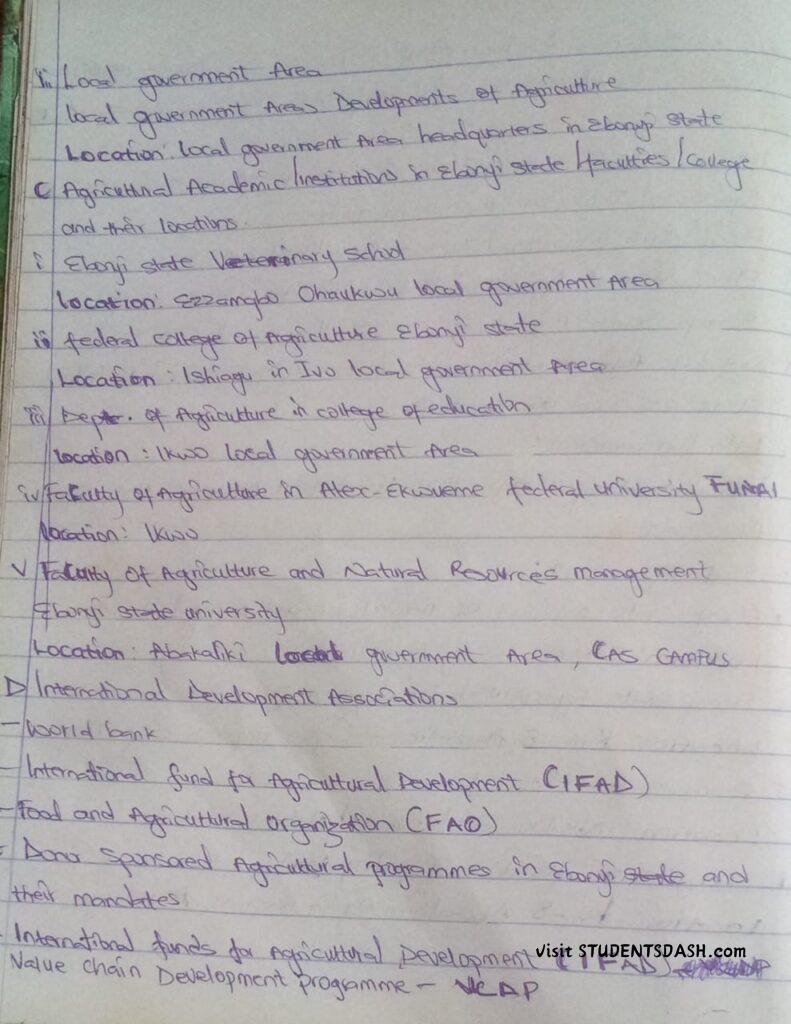 ii. Local government Area
local government Areas Developments of Agriculture
Location: local government Area headquarters in Ebonyi state
C Agricultural Academic/institutions in Ebonyi state/faculties/college
and their locations.
i Ebonyi state Veterinary School
Location: Ezzamgbo Ohaukwu local government Area
ii federal college of Agriculture Ebonyi state
Location: Ishiagu in Ivo local government Area
iii Dept. of Agriculture in college of education
Location: Ikwo local government Area
iv Faculty of Agriculture in Alex-Ekwueme federal university FUNAI
location: Ikwo
V Faculty of Agriculture and Natural Resources management
Ebonyi state university
Location: Abakaliki Local government Area, CAS CAMPUS
D International Development Associations
- World bank
- International fund for Agricultural Development (IFAD)
- Food and Agricultural organization (FAO)
Donor Sponsored Agricultural programmes in Ebonyi state and
their mandates
International funds for Agricultural Development (IFAD)
Value Chain Development programme - VCAP
visit STUDENTSDASH.com